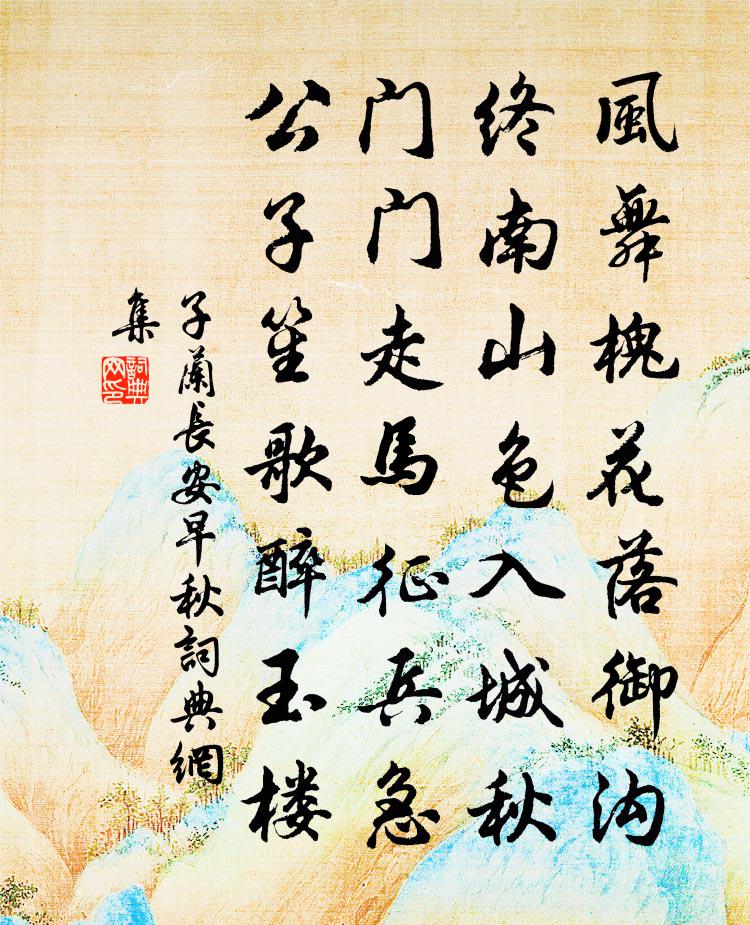 風舞槐花落御沟
终南山色入城秋
门门走馬征兵急
公子笙歌醉玉楼
子蘭長安早秋詞典網
集
詞典
网印